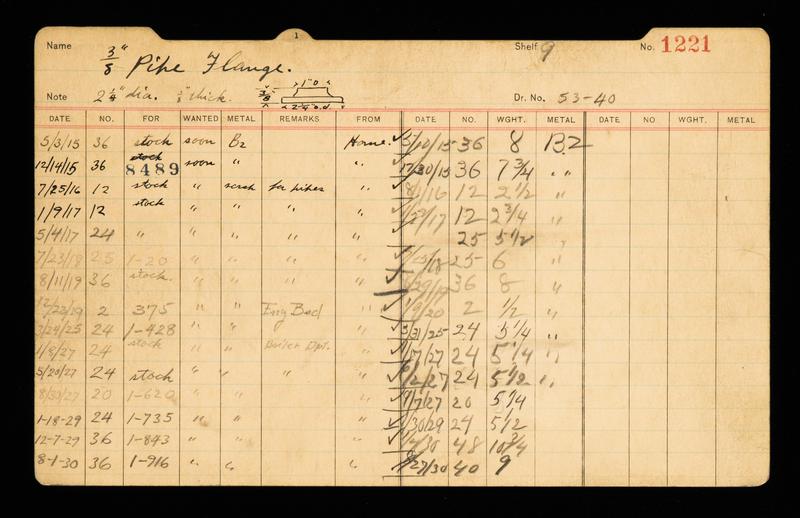 1
Name 3/8" Pipe Flange. Shelf 9 No. 1221
Note 2 1/4" dia. thick. 3/8 1" D 2 1/4 O.D. Dr. No. 53-40
DATE NO. FOR WANTED METAL REMARKS FROM DATE NO. WGHT. METAL DATE NO WGHT. METAL
5/3/15 36 stock soon B2 Home. ✓ 5/10/15 36 8 B.2
stock
12/14/15 36 8489 soon " " ✓ 12/30/15 36 7 3/4 " "
7/25/16 12 stock " scrah for pipes " ✓ 12 2 1/2 "
1/9/17 12 stock " " " " ✓ 12 2 3/4 "
5/4/17 24 " " " " " 25 5 1/2 "
7/23/18 25 1-20 " " " " ✓ 25 6 "
8/11/19 36 stock. " " " " ✓ 36 8 "
12/22/19 2 375 " " Eng Bed " ✓ 1/9/20 2 1/2 "
3/24/25 24 1-428 " " " ✓ 3/31/25 24 5 1/4 "
1/8/27 24 stock " " Boiler Dpt. " ✓ 1/17/27 24 5 1/4 "
5/20/27 24 stock " " " " ✓ 6/2/27 24 5 1/2 "
8/30/27 20 1-620 " " " ✓ 9/7/27 20 5 1/4
1-18-29 24 1-735 " " " ✓ 1/30/29 24 5 1/2
12-7-29 36 1-843 " " " ✓ 1/4/30 48 10 3/4
8-1-30 36 1-916 " " " ✓ 8/27/30 40 9